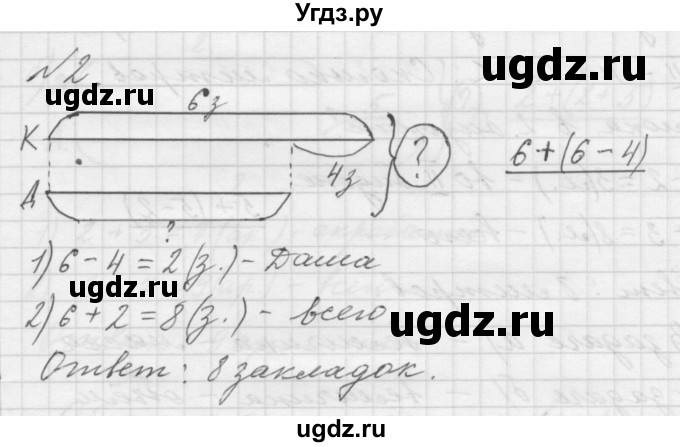 Угдз.ру
№2
ugdz.ru
ugdz.ru
6з
К
?
6+(6-4)
4з
Д
?
ugdz.ru
1) 6-4=2(з.) - Даша
2) 6+2=8(з.) - всего
ugdz.ru
ugdz.ru
Ответ: 8 закладок.
ugdz.ru